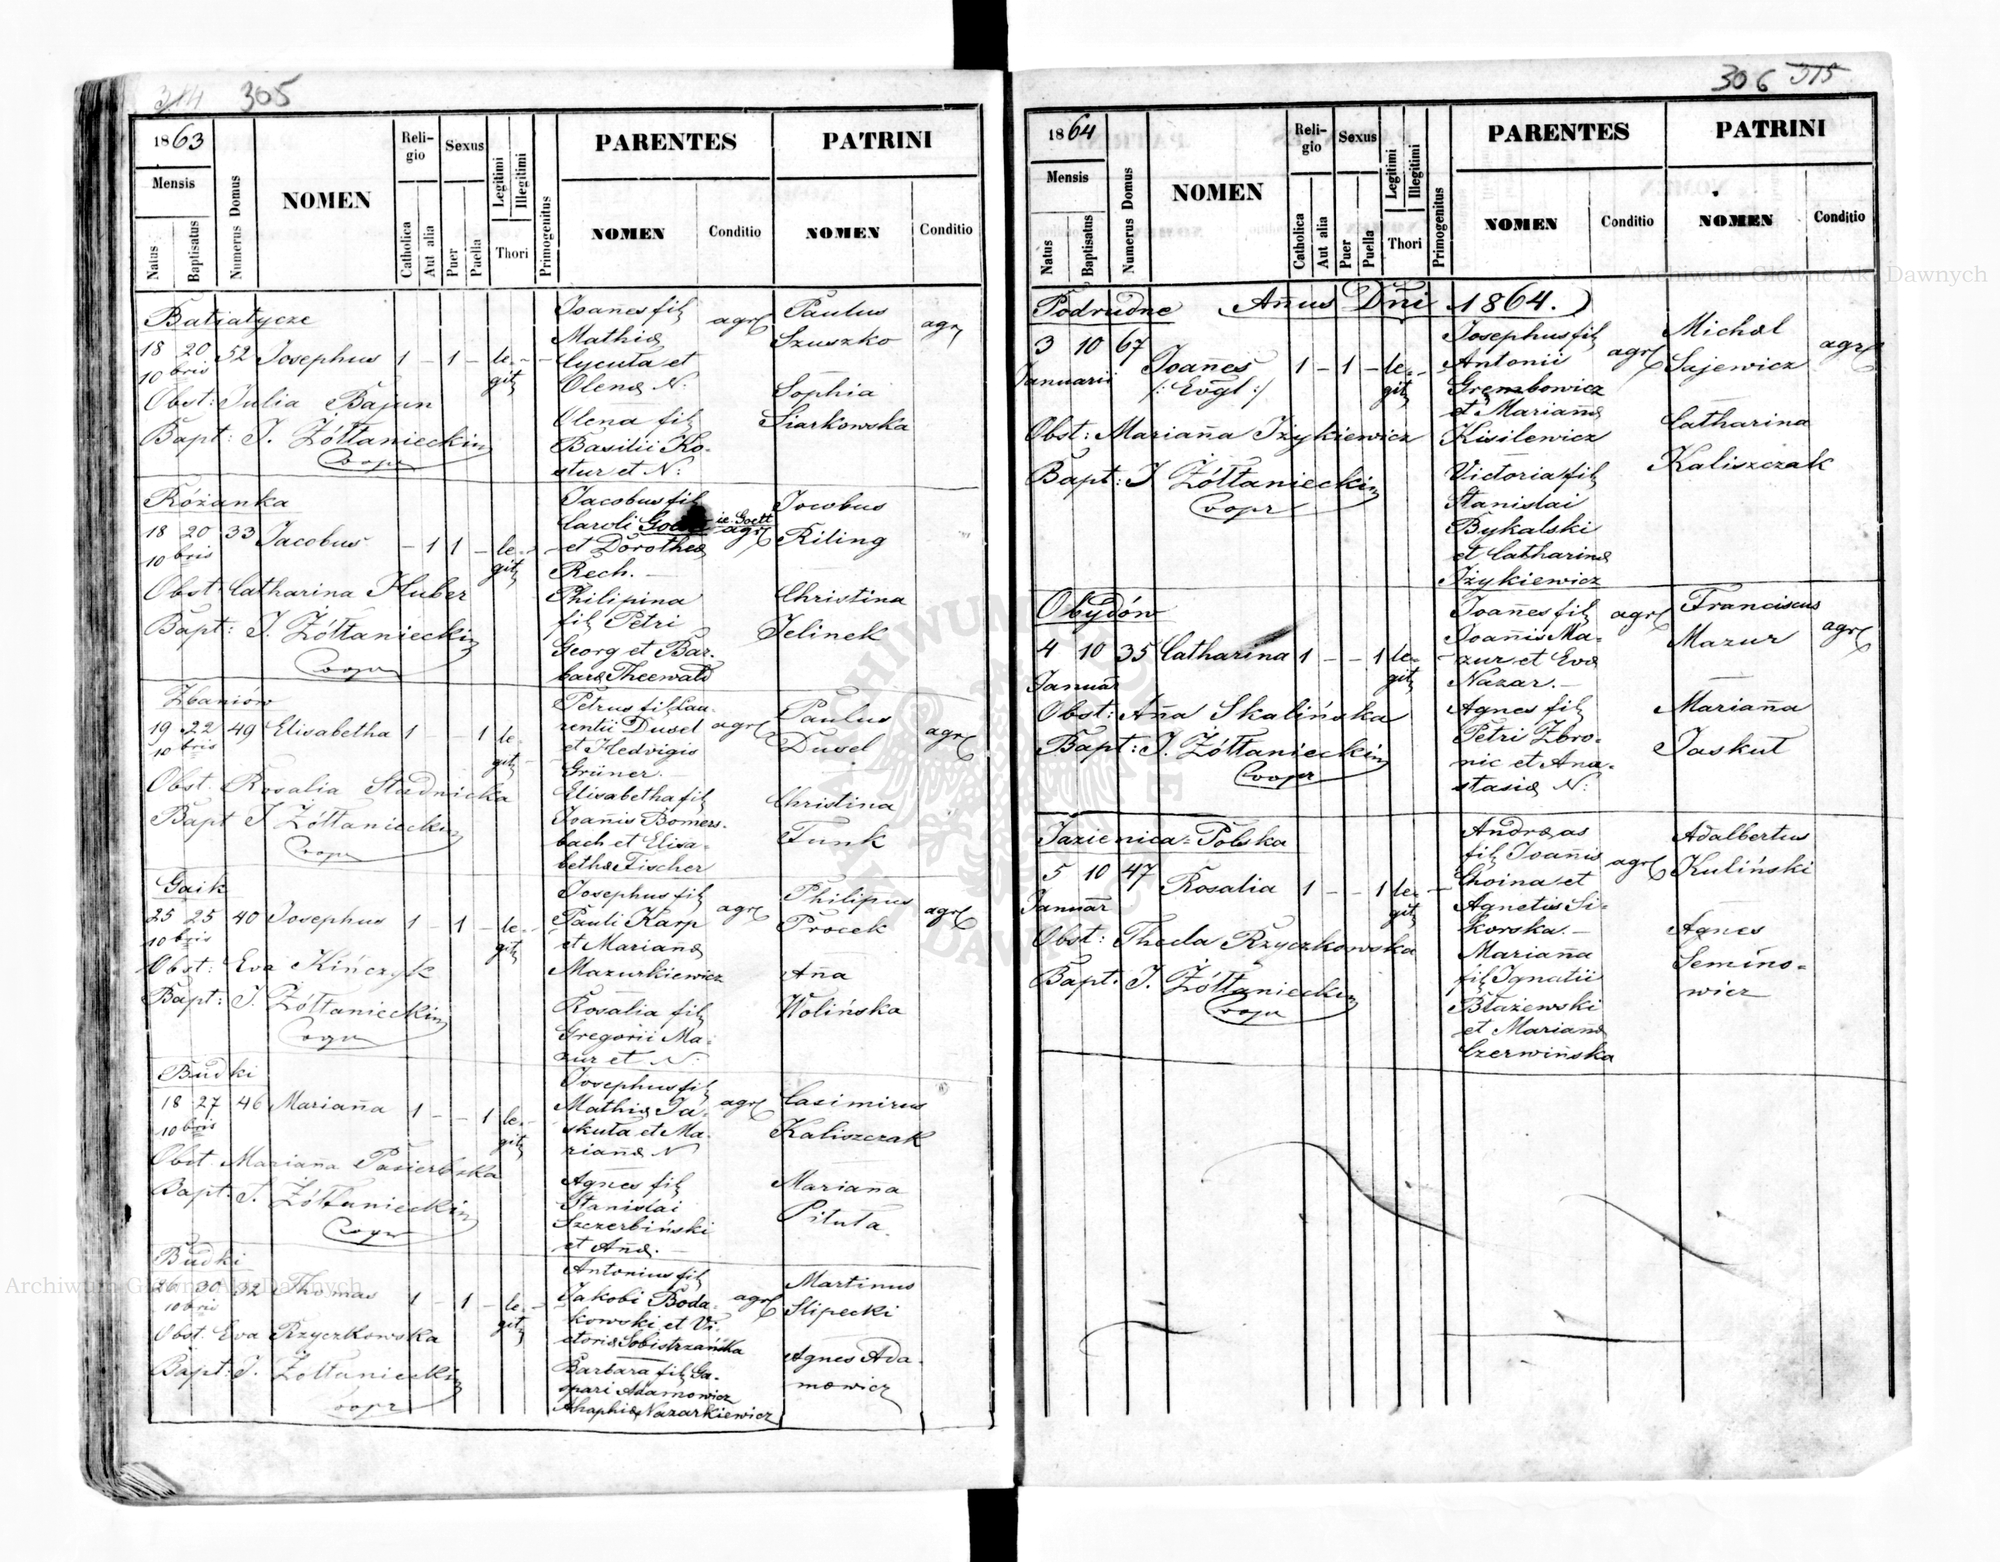 314 305
1863
Mensis
Natus
Baptisatus
Numerus Domus
NOMEN
Religio
Catholica
Aut alia
Sexus
Puer
Puella
Legitimi
Illegitimi
Thori
Primogenitus
PARENTES
NOMEN
Conditio
PATRINI
NOMEN
Conditio
Batiatycze
18 20 52 Josephus 1 - 1 - le-
10bris
gitz
Obst: Julia Bajun
Bapt: J. Żółtaniecki
Coopr
Joañes filz
Mathiæ
Cycuta et
Olenæ N:
Olena filz
Basilii Ko-
stur et N:
agr
Paulus
Szuszko
Sophia
Siarkowska
agr
Różanka
18 20 33 Jacobus - 1 1 - le-
10bris
gitz
Obst Catharina Huber
Bapt: J. Żółtaniecki
Coopr
Jacobus filz
Caroli ie. Goett
et Dorotheæ
Rech.
Philipina
filz Petri
Georg et Bar-
baræ Theewald
agr
Jocobus
Riling
Christina
Jelinek
Zbaniów
19 22 49 Elisabetha 1 - - 1 le-
10bris
gitz
Obst. Rosalia Studnicka
Bapt J Żółtaniecki
Coopr
Petrus filz Lau-
rentii Dusel
et Hedvigis
Grüner.
Elisabetha filz
Joanis Bomers-
bach et Elisa-
bethæ Fischer
agr
Paulus
Dusel
Christina
Funk
agr
Gaik
25 25 40 Josephus 1 - 1 - le-
10bris
gitz
Obst: Eva Kińczyk
Bapt: J. Żółtaniecki
Coopr
Josephus filz
Pauli Karp
et Marianæ
Mazurkiewicz
Rosalia filz
Gregorii Ma-
zur et N:
agr
Philipus
Procek
Aña
Wolińska
agr
Budki
18 27 46 Mariaña 1 - - 1 le-
10bris
gitz
Obst Mariaña Pasierbska
Bapt: J. Żółtaniecki
Coopr
Josephus filz
Mathiæ Ja-
skuta et Ma-
rianæ N
Agnes filz
Stanislai
Szczerbiński
et Añæ.
agr
Casimirus
Kaliszczak
Mariaña
Pituta
Budki
26 30 32 Thomas 1 - 1 - le-
10bris
gitz
Obst. Eva Rzyczkowska
Bapt: J. Żółtaniecki
Coopr
Antonius filz
Jakobi Boda-
kowski et Vi-
ctoriæ Sobistrzańska
Barbara filz Ga-
spari Adamowicz
Ahaphiæ Nazarkiewicz
agr
Martinus
Slipecki
Agnes Ada-
mowicz
306 315
1864
Mensis
Natus
Baptisatus
Numerus Domus
NOMEN
Religio
Catholica
Aut alia
Sexus
Puer
Puella
Legitimi
Illegitimi
Thori
Primogenitus
PARENTES
NOMEN
Conditio
PATRINI
NOMEN
Conditio
Podrudne Añus Dñi 1864.
3 10 67 Joañes 1 - 1 - le-
Januarii /: Evgl :/ gitz
Obst: Mariaña Iżykiewicz
Bapt: J Żółtaniecki
Coopr
Josephus filz
Antonii
Grembowicz
et Marianæ
Kisilewicz
Victoria filz
Stanislai
Bykalski
et Catharinæ
Iżykiewicz
agr
Michæl
Sajewicz
Catharina
Kaliszczak
agr
Obydów
4 10 35 Catharina 1 - - 1 le-
Januar
gitz
Obst: Aña Skalińska
Bapt: J. Żółtaniecki
Coopr
Joañes filz
Joañis Ma-
zur et Evæ
Nazar.
Agnes filz
Petri Zbro-
nic et Ana-
stasiæ N:
agr
Franciscus
Mazur
Mariaña
Jaskut
agr
Jazienica-Polska
5 10 47 Rosalia 1 - - 1 le-
Januar
gitz
Obst: Thecla Rzyczkowska
Bapt. J. Żółtaniecki
Coopr
Andræas
filz Joañis
Choina et
Agnetis Si-
korska.
Mariaña
filz Ignatii
Błażewski
et Marianæ
Czerwińska
agr
Adalbertus
Kuliński
Agnes
Semino-
wicz
Archiwum Główne Akt Dawnych
Archiwum Główne Akt Dawnych
ARCHIWUM GŁÓWNE AKT DAWNYCH